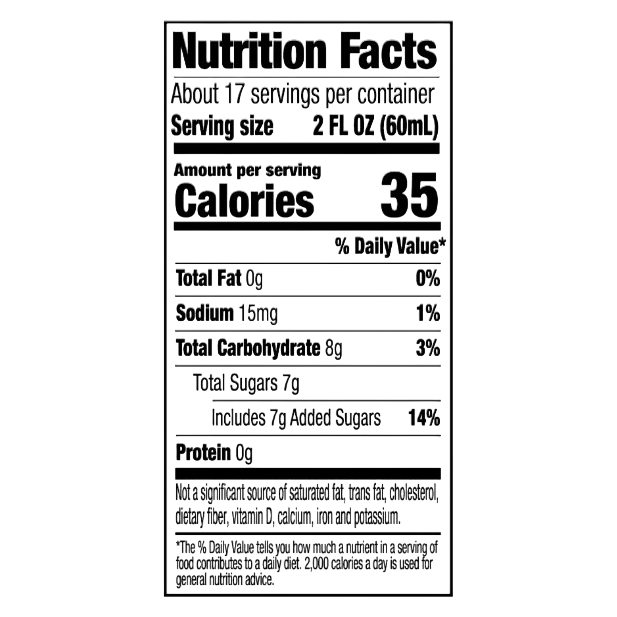 Nutrition Facts
About 17 servings per container
Serving size 2 FL OZ (60mL)
Amount per serving
Calories 35
% Daily Value*
Total Fat 0g 0%
Sodium 15mg 1%
Total Carbohydrate 8g 3%
Total Sugars 7g
Includes 7g Added Sugars 14%
Protein 0g
Not a significant source of saturated fat, trans fat, cholesterol,
dietary fiber, vitamin D, calcium, iron and potassium.
*The % Daily Value tells you how much a nutrient in a serving of
food contributes to a daily diet. 2,000 calories a day is used for
general nutrition advice.